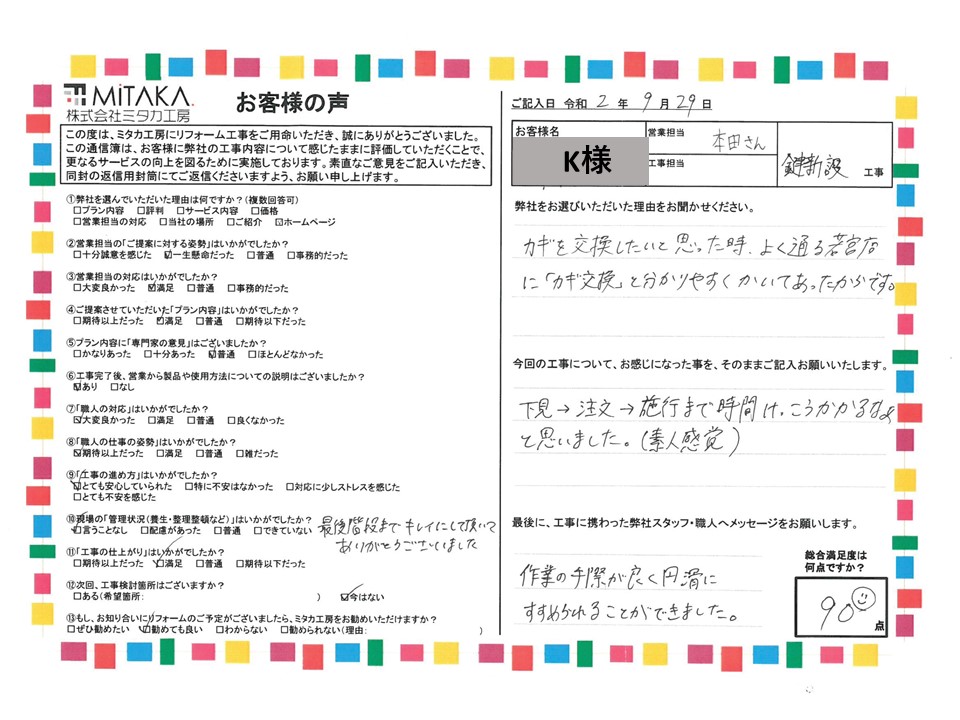 MiTAKA
株式会社ミタカ工房
お客様の声
この度は、ミタカ工房にリフォーム工事をご用命いただき、誠にありがとうございました。
この通信簿は、お客様に弊社の工事内容について感じたままに評価していただくことで、
更なるサービスの向上を図るために実施しております。素直なご意見をご記入いただき、
同封の返信用封筒にてご返信くださいますよう、お願い申し上げます。
①弊社を選んでいただいた理由は何ですか？(複数回答可)
□プラン内容 □評判 □サービス内容 □価格
□営業担当の対応 □当社の場所 □ご紹介 ☑ホームページ
②営業担当の「ご提案に対する姿勢」はいかがでしたか？
□十分誠意を感じた ☑一生懸命だった □普通 □事務的だった
③営業担当の対応はいかがでしたか？
□大変良かった ☑満足 □普通 □事務的だった
④ご提案させていただいた「プラン内容」はいかがでしたか？
□期待以上だった ☑満足 □普通 □期待以下だった
⑤プラン内容に「専門家の意見」はございましたか？
□かなりあった □十分あった ☑普通 □ほとんどなかった
⑥工事完了後、営業から製品や使用方法についての説明はございましたか？
☑あり □なし
⑦「職人の対応」はいかがでしたか？
☑大変良かった □満足 □普通 □良くなかった
⑧「職人の仕事の姿勢」はいかがでしたか？
☑期待以上だった □満足 □普通 □雑だった
⑨「工事の進め方」はいかがでしたか？
☑とても安心していられた □特に不安はなかった □対応に少しストレスを感じた
□とても不安を感じた
⑩現場の「管理状況(養生・整理整頓など)」はいかがでしたか？
☑言うことなし □配慮があった □普通 □できていない
最後階段までキレイにして頂いて
ありがとうございました
⑪「工事の仕上がり」はいかがでしたか？
□期待以上だった ☑満足 □普通 □期待以下だった
⑫次回、工事検討箇所はございますか？
□ある(希望箇所: ) ☑今はない
⑬もし、お知り合いにリフォームのご予定がございましたら、ミタカ工房をお勧めいただけますか？
□ぜひ勧めたい ☑勧めても良い □わからない □勧められない(理由: )
ご記入日 令和 2 年 9 月 29 日
お客様名
K様
営業担当 本田さん
工事担当
鍵新設 工事
弊社をお選びいただいた理由をお聞かせください。
カギを交換したいと思った時、よく通る若宮店
に「カギ交換」と分かりやすくかいてあったからです。
今回の工事について、お感じになった事を、そのままご記入お願いいたします。
下見→注文→施行まで時間けっこうかかるなぁ
と思いました。(素人感覚)
最後に、工事に携わった弊社スタッフ・職人へメッセージをお願いします。
作業の手際が良く円滑に
すすめられることができました。
総合満足度は
何点ですか？
90 点